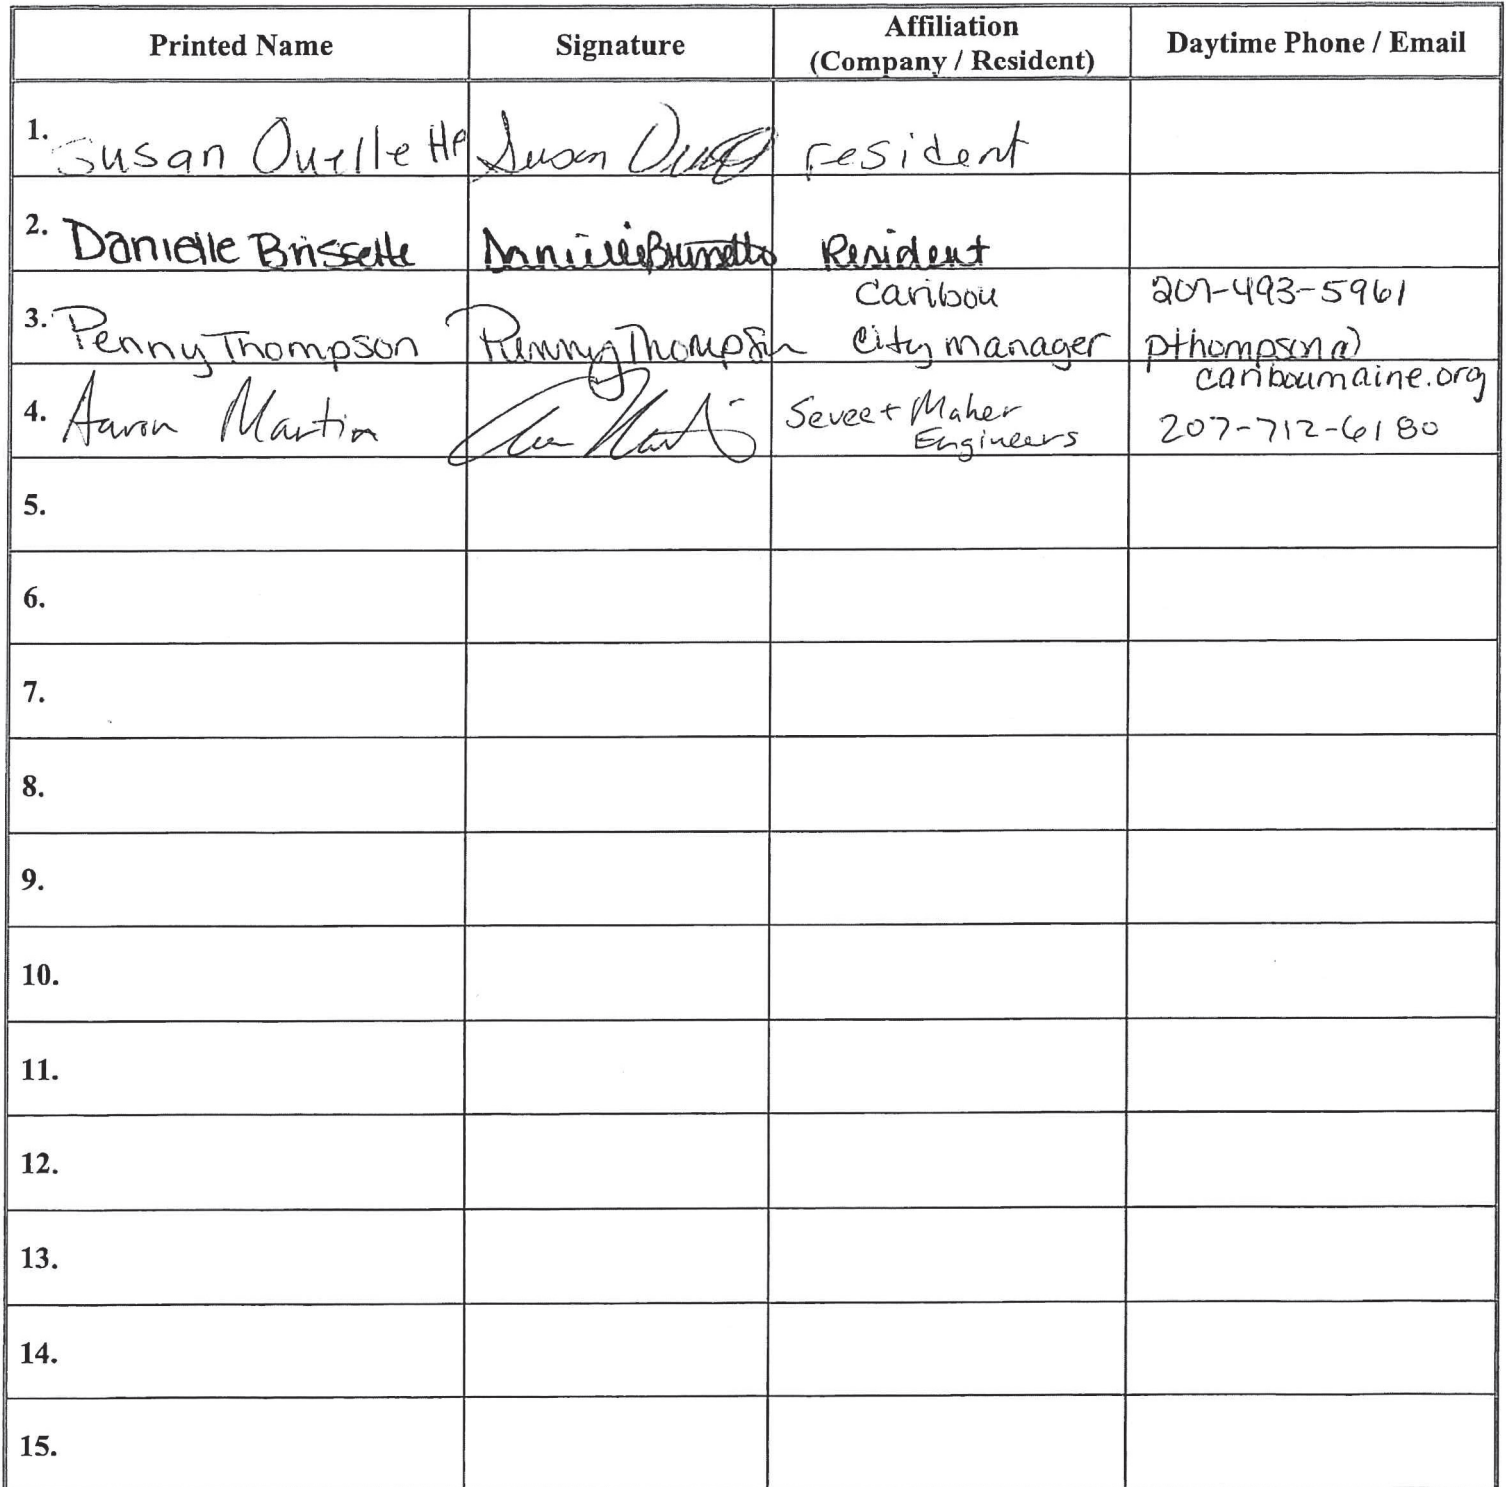 Printed Name Signature Affiliation (Company / Resident) Daytime Phone / Email
1. Susan Ouellette Susan resident
2. Danielle Brissette Danielle Resident
3. Penny Thompson Penny Thompson Caribou City manager 207-493-5961 pthompson@cariboumaine.org
4. Aaron Martin Sevee + Maher Engineers 207-712-6180
5.
6.
7.
8.
9.
10.
11.
12.
13.
14.
15.